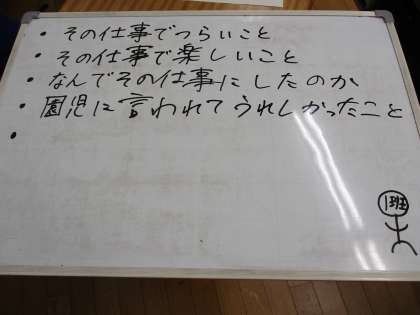 ・その仕事でつらいこと
・その仕事で楽しいこと
・なんでその仕事にしたのか
・園児に言われてうれしかったこと
・
1班